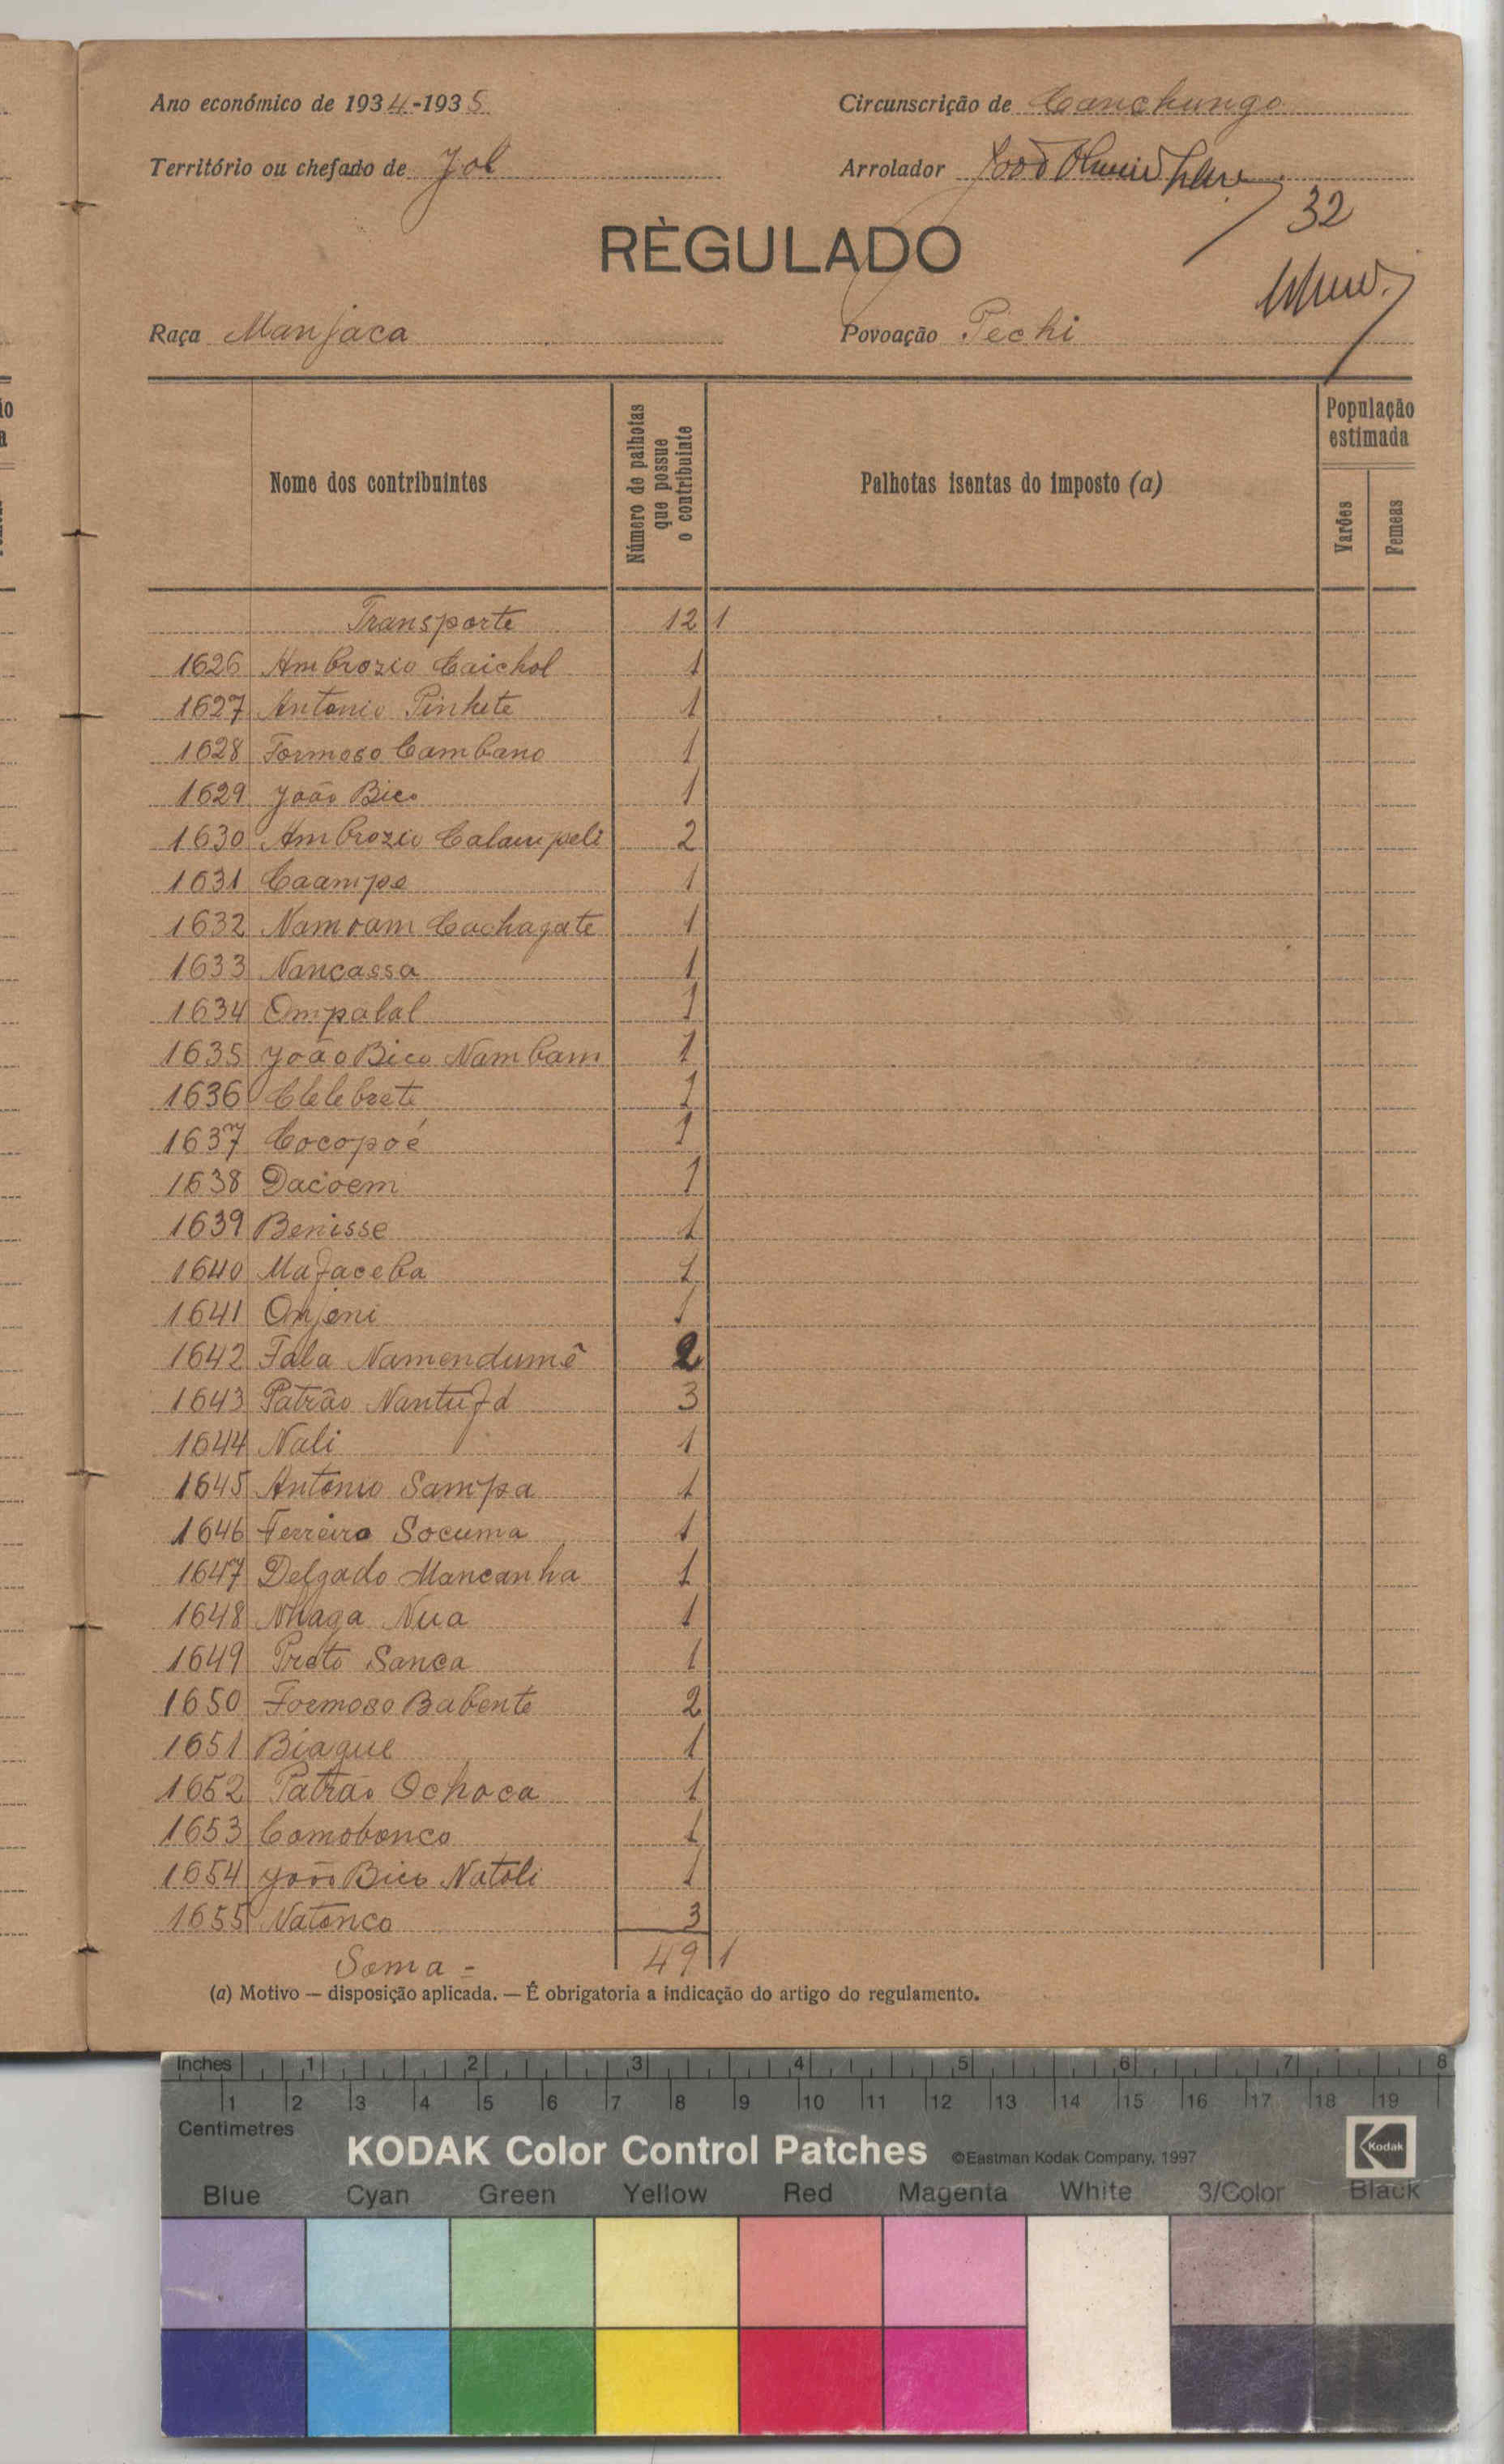 Ano económico de 1934-1935 Circunscrição de Canchungo
Território ou chefado de Jol Arrolador João
32
RÈGULADO
Raça Manjaca Povoação Pechi
Nome dos contribuintes Número de palhotas que possue o contribuinte Palhotas isentas do imposto (a) População estimada Varões Femeas
Transporte 12 1
1626 Ambrozio Caichol 1
1627 Antonio Pinhete 1
1628 Formoso Cambano 1
1629 João Bico 1
1630 Ambrozio Calampeli 2
1631 Caampe 1
1632 Namoam Cachagate 1
1633 Nancassa 1
1634 Ompalal 1
1635 João Bico Nambam 1
1636 Clelebrete 1
1637 Cocopoé 1
1638 Dacoem 1
1639 Benisse 1
1640 Mafaceba 1
1641 Onjeni 1
1642 Fala Namendumê 2
1643 Patrão 3
1644 Nali 1
1645 Antonio Sampa 1
1646 Ferreira Socuma 1
1647 Delgado Mancanha 1
1648 Nhaga Nua 1
1649 Preto Sanca 1
1650 Formoso Babente 2
1651 Biague 1
1652 Patrão Ochoca 1
1653 Comobonco 1
1654 João Bico Natoli 1
1655 Natonco 3
Soma - 49 1
(a) Motivo — disposição aplicada. — É obrigatoria a indicação do artigo do regulamento.
Inches 1 2 3 4 5 6 7 8
1 2 3 4 5 6 7 8 9 10 11 12 13 14 15 16 17 18 19
Centimetres
KODAK Color Control Patches ©Eastman Kodak Company, 1997 Kodak
Blue Cyan Green Yellow Red Magenta White 3/Color Black